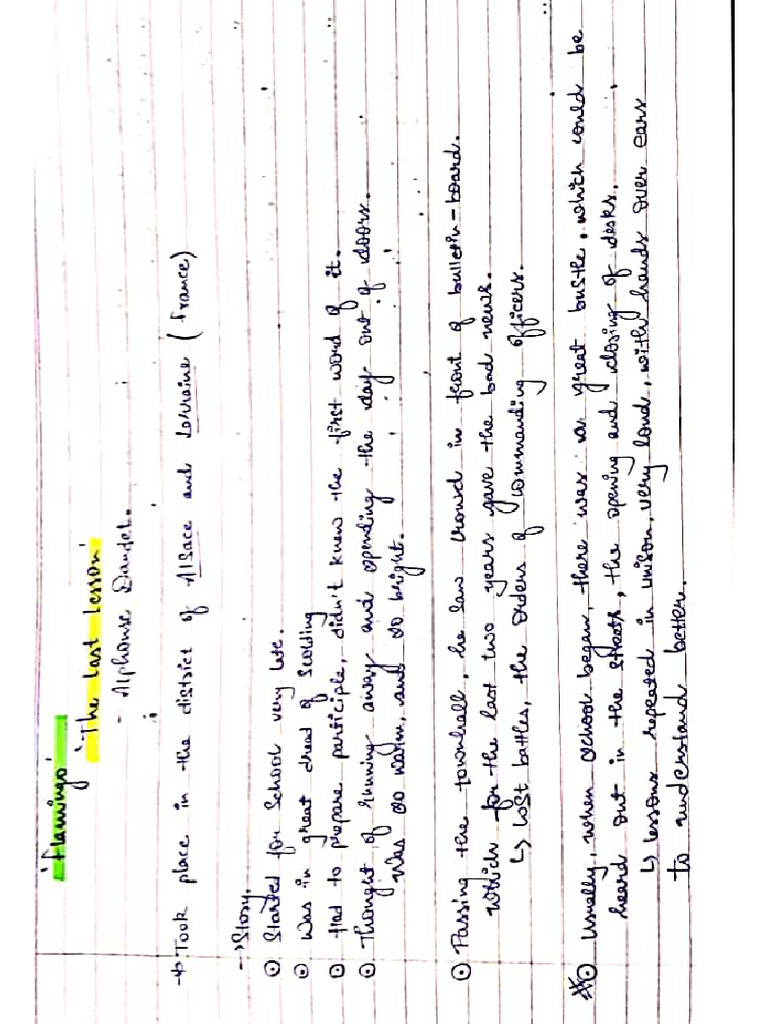 'Flamingo'
'The Last Lesson'
- Alphonse Daudet.
→ Took place in the district of Alsace and Lorraine (France)
→ Story.
⊙ Started for School very late.
⊙ Was in great dread of Scolding
⊙ Had to prepare participle, didn't knew the first word of it.
⊙ Thought of running away and spending the day out of doors.
Was so warm, and so bright.
⊙ Passing the townhall, he saw crowd in front of bulletin-board.
Which for the last two years gave the bad news.
↳ Lost battles, the orders of commanding officers.
⊙ Usually, when school began, there was a great bustle, which could be
heard out in the streets, the opening and closing of desks,
↳ lessons repeated in unison, very loud, with hands over ears
to understand better.